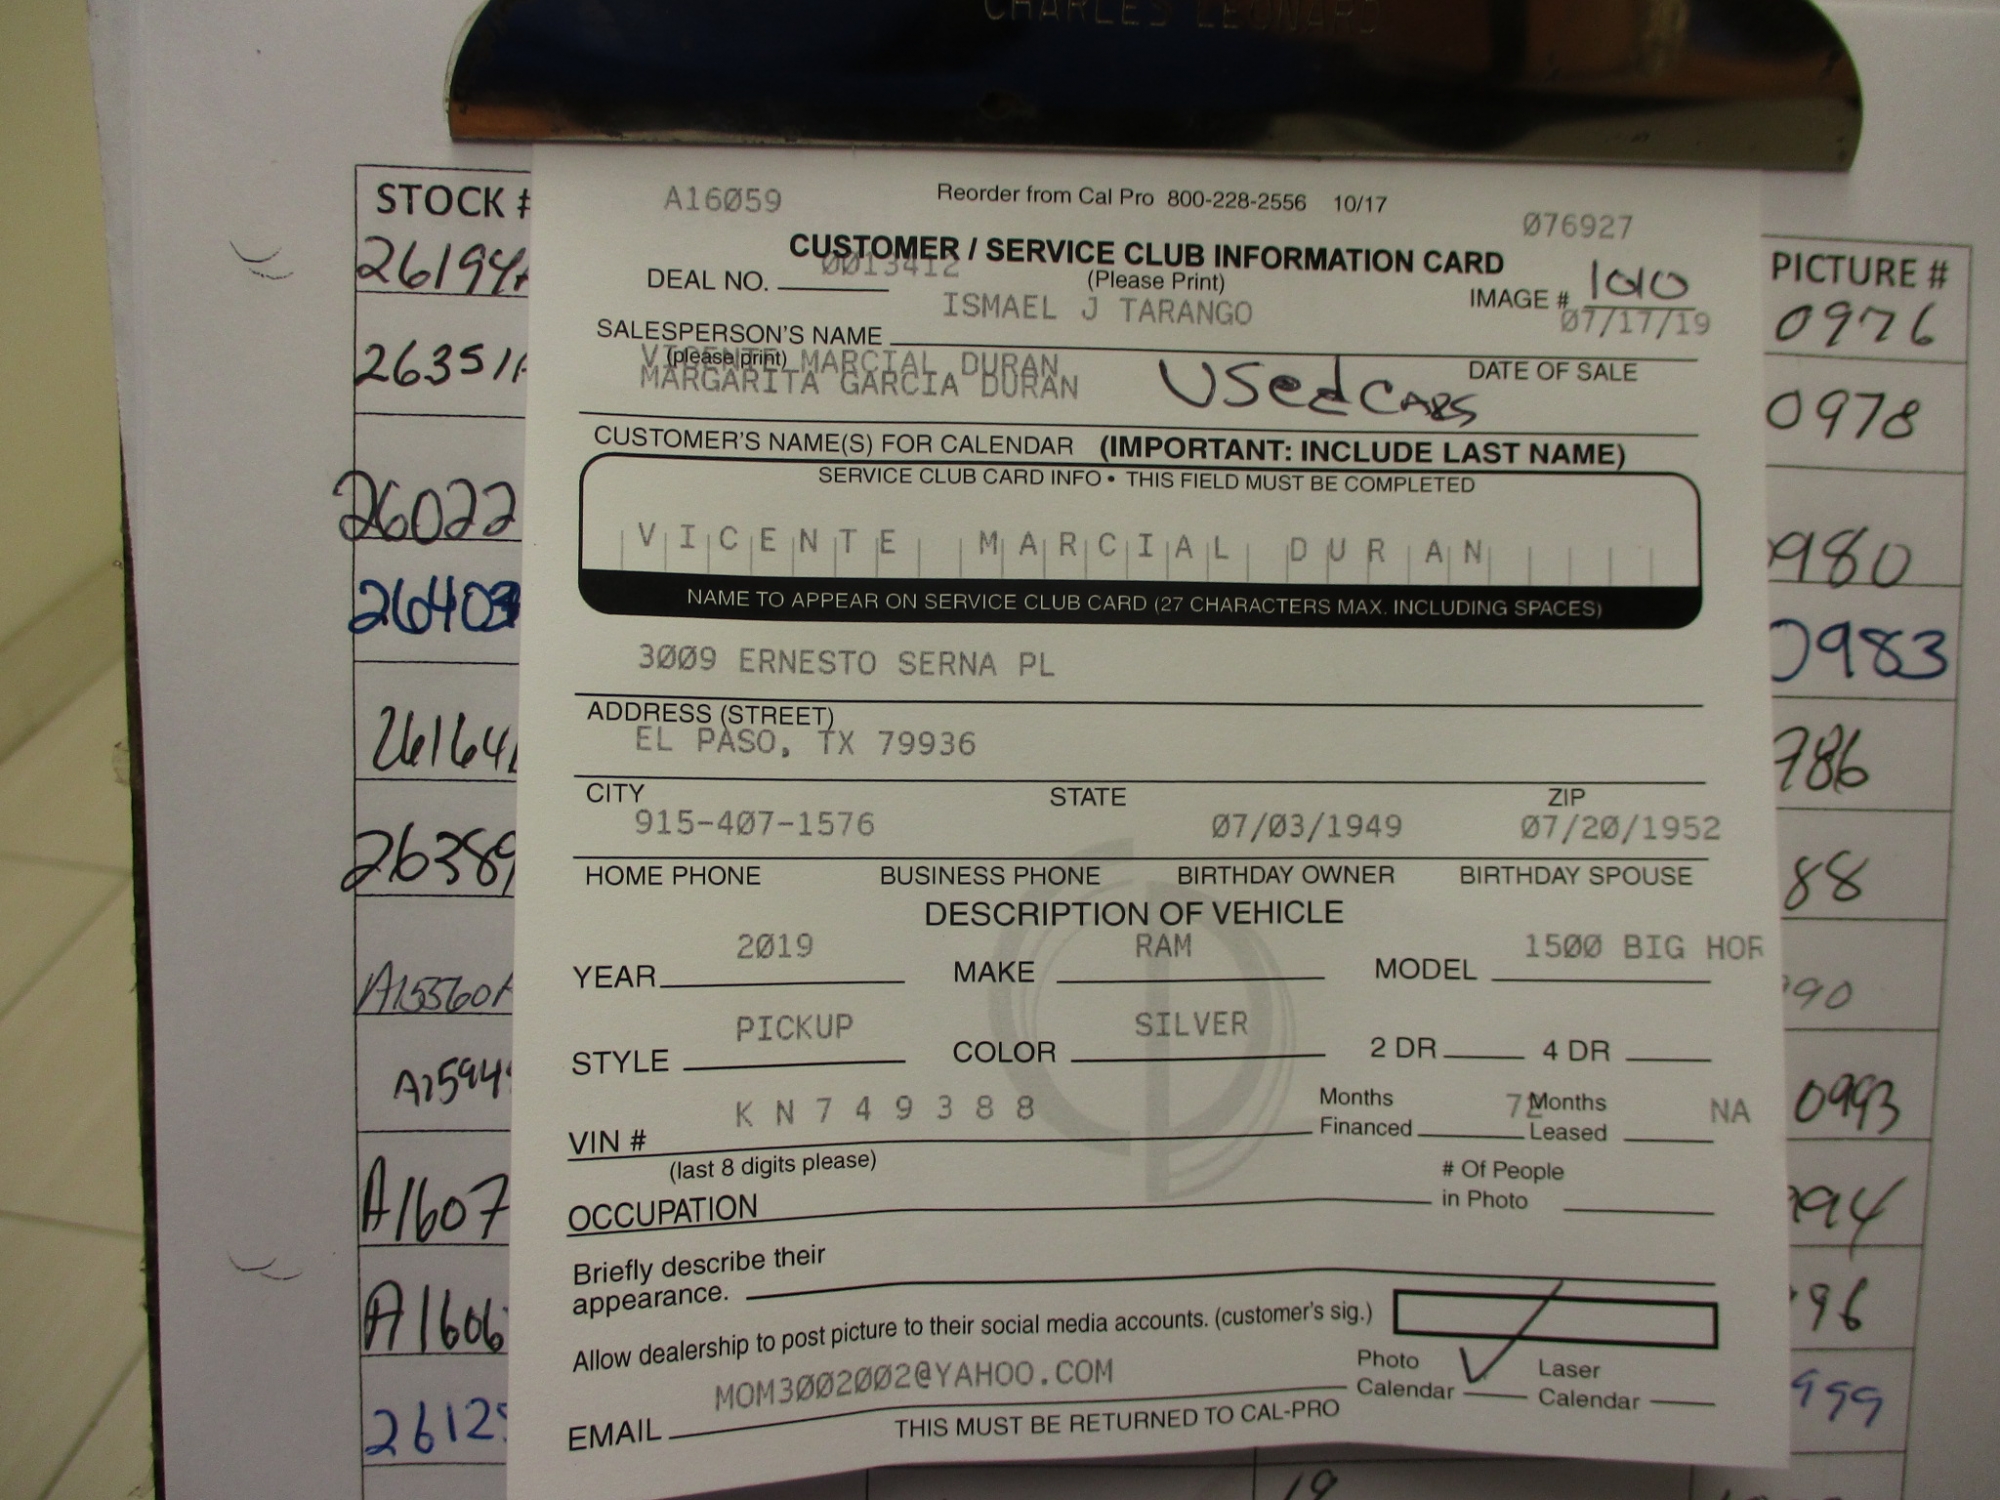 CHARLES LEONARD
STOCK #
26194A
26351A
26022
26403
26164
26389
A15560A
A1594
A1607
A1606
2612
A16059
Reorder from Cal Pro 800-228-2556 10/17
076927
CUSTOMER / SERVICE CLUB INFORMATION CARD
DEAL NO. 0013412
(Please Print)
IMAGE # 1010
ISMAEL J TARANGO
07/17/19
SALESPERSON'S NAME
(please print)
VICENTE MARCIAL DURAN
MARGARITA GARCIA DURAN
USed CARS
DATE OF SALE
CUSTOMER'S NAME(S) FOR CALENDAR (IMPORTANT: INCLUDE LAST NAME)
SERVICE CLUB CARD INFO • THIS FIELD MUST BE COMPLETED
VICENTE MARCIAL DURAN
NAME TO APPEAR ON SERVICE CLUB CARD (27 CHARACTERS MAX. INCLUDING SPACES)
3009 ERNESTO SERNA PL
ADDRESS (STREET)
EL PASO, TX 79936
CITY STATE ZIP
915-407-1576 07/03/1949 07/20/1952
HOME PHONE BUSINESS PHONE BIRTHDAY OWNER BIRTHDAY SPOUSE
DESCRIPTION OF VEHICLE
YEAR 2019 MAKE RAM MODEL 1500 BIG HOR
STYLE PICKUP COLOR SILVER 2 DR 4 DR
VIN # KN749388 Months Financed 72 Months Leased NA
(last 8 digits please)
# Of People in Photo
OCCUPATION
Briefly describe their
appearance.
Allow dealership to post picture to their social media accounts. (customer's sig.)
Photo Calendar Laser Calendar
EMAIL MOM3002002@YAHOO.COM
THIS MUST BE RETURNED TO CAL-PRO
PICTURE #
0976
0978
980
0983
786
88
90
0993
994
96
999
19